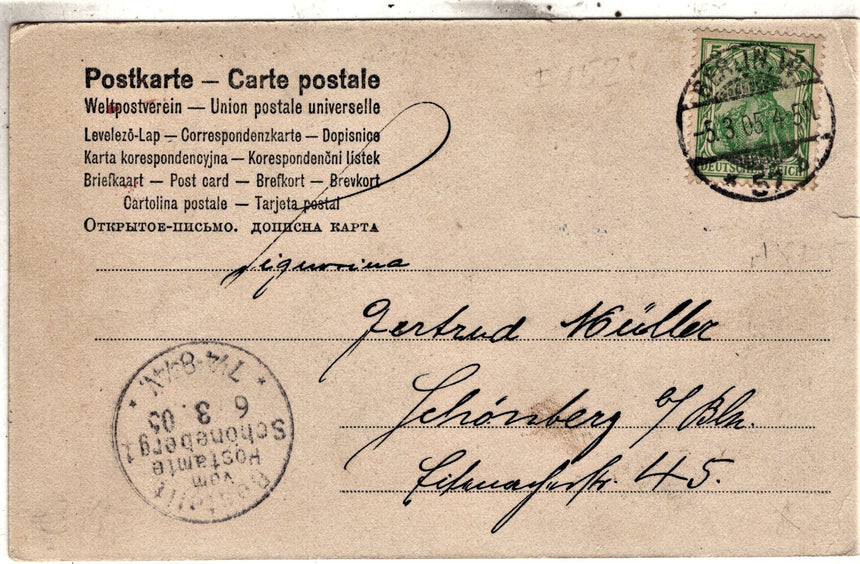 Postkarte — Carte postale
Weltpostverein — Union postale universelle
Levelező-Lap — Correspondenzkarte — Dopisnice
Karta korespondencyjna — Korespondenční lístek
Briefkaart — Post card — Brefkort — Brevkort
Cartolina postale — Tarjeta postal
Открытое-письмо. дописна карта
5 5
BERLIN W.
-5.3.05.4-5N.
DEUTSCHES REICH
* 57 b
Signorina
Gertrud Müller
Schönberg b/Bln.
Eisenacherstr. 45.
Bestellt
vom
Postamte
Schöneberg 1
6. 3. 05
* 7¼-8¼N. *